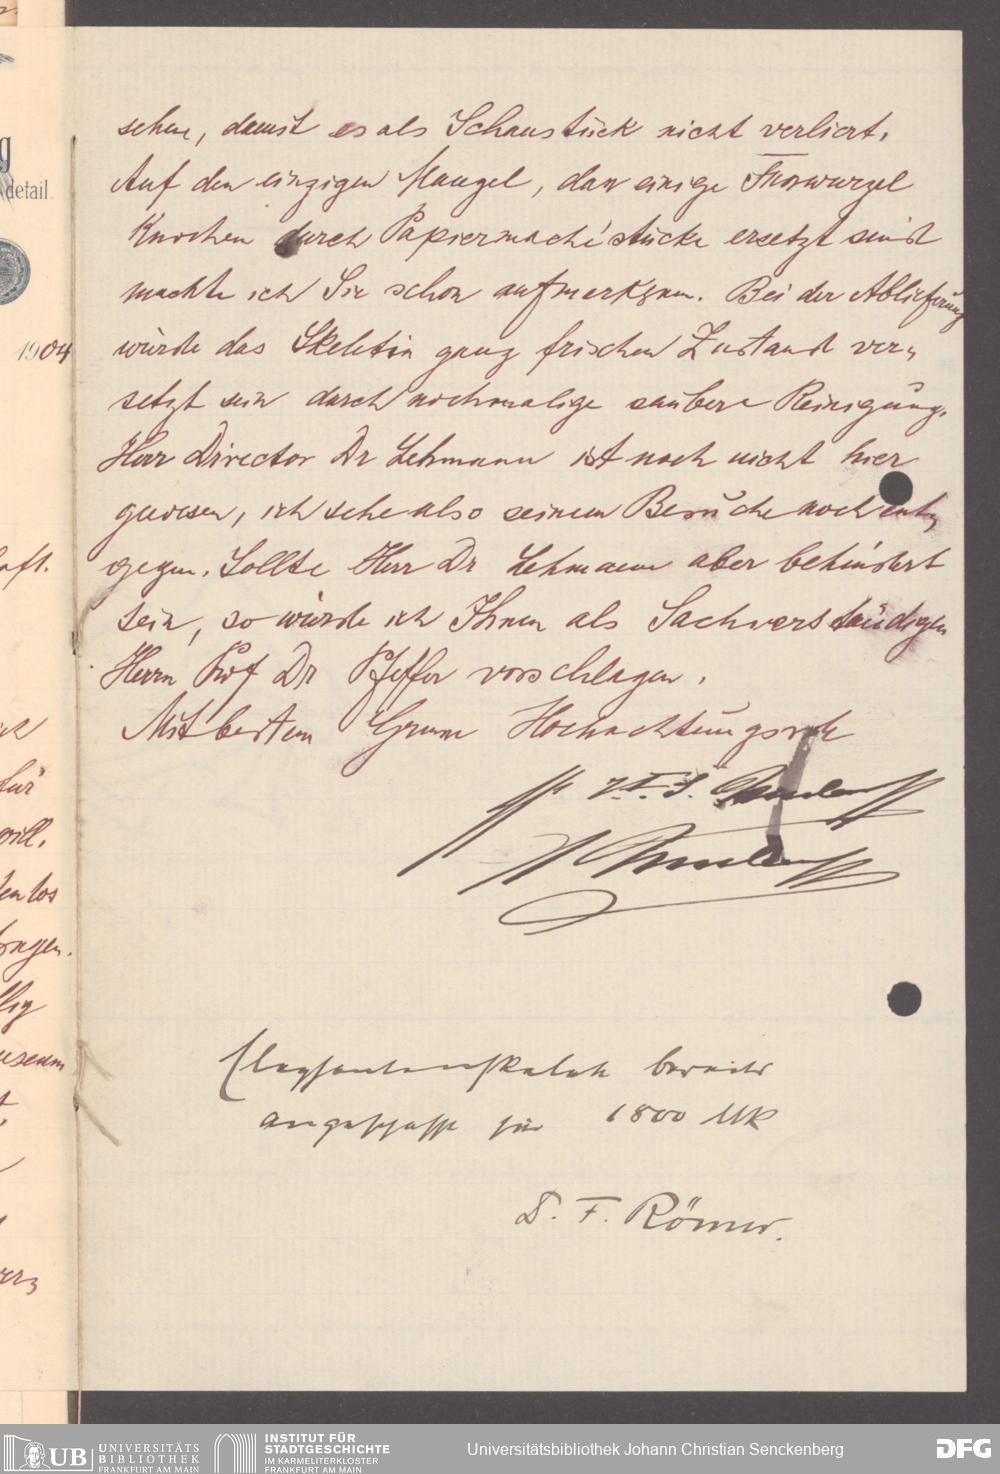 sehen, damit es als Schaustück nicht verliert.
Auf den einzigen Mangel, dass einige
Knochen durch Papiermaché stücke ersetzt sind
machte ich Sie schon aufmerksam. Bei der Ablieferung
würde das Skelet in ganz frischen Zustand ver-
setzt sein durch nochmalige saubere Reinigung.
Herr Director Dr Lehmann ist noch nicht hier
gewesen, ich sehe also seinem Besuche noch ent-
gegen. Sollte Herr Dr Lehmann aber behindert
sein, so würde ich Ihnen als Sachverständigen
Herrn Prof Dr Pfeffer vorschlagen.
Mit bestem Gruss Hochachtungsvoll
Elephantenskelett bereits
angeschafft für 1800 Mk
D. F. Römer.
detail.
1904
für
will.
UB UNIVERSITÄTS
BIBLIOTHEK
FRANKFURT AM MAIN
INSTITUT FÜR
STADTGESCHICHTE
IM KARMELITERKLOSTER
FRANKFURT AM MAIN
Universitätsbibliothek Johann Christian Senckenberg
DFG